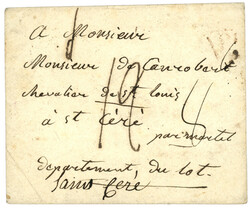 A Monsieur
Monsieur de Canrobert
chevalier de st Louis
à st Céré
par martel
departement, du lot.
Saint Cere